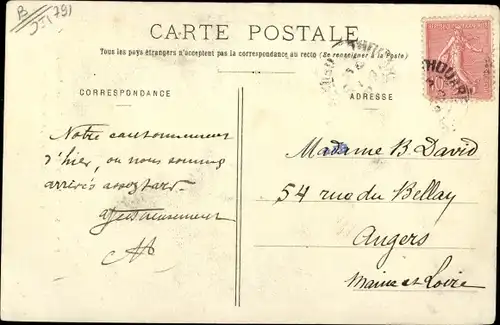 B
(79)
CARTE POSTALE
Tous les pays étrangers n'acceptent pas la correspondance au recto (Se renseigner à la Poste)
CORRESPONDANCE
ADRESSE
THOUARS
Notre cantonnement
d'hier, où nous sommes
arrivés assez tard.
Affectueusement
Madame B. David
54 rue du Bellay
Angers
Maine et Loire